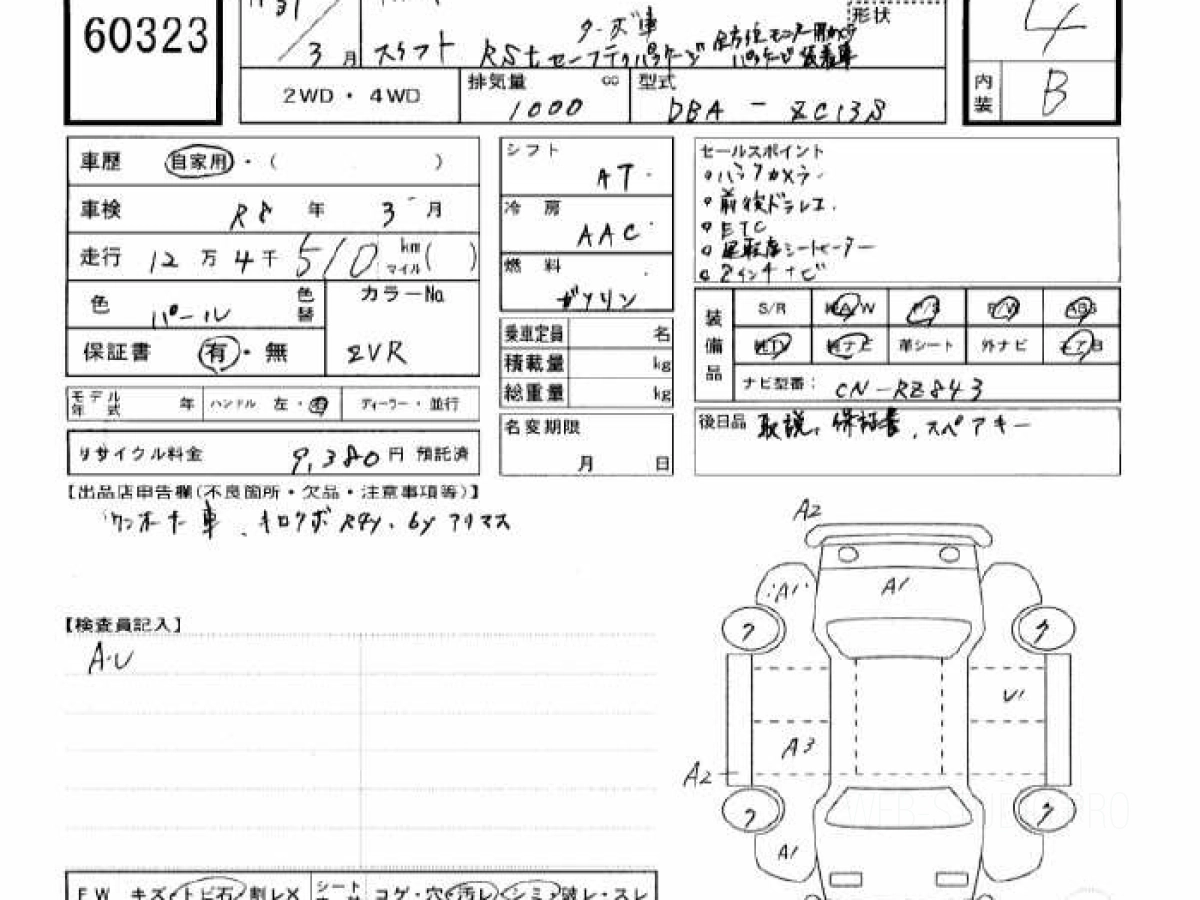 60323
H 31
3 月
スイフト RSt セーフティパッケージ
ターボ車
全方位モニター用カメラ
パッケージ 装着車
形状
4
内装 B
2WD・4WD
排気量 cc 1000
型式 DBA - ZC13S
車歴 自家用・( )
車検 R8 年 3 月
走行 12 万 4 千 510 km マイル ( )
色 パール 色替
カラーNo. ZVR
保証書 有・無
モデル年式 年 ハンドル 左・右 ディーラー・並行
リサイクル料金 9,380 円 預託済
シフト AT
冷房 AAC
燃料 ガソリン
乗車定員 名
積載量 kg
総重量 kg
名変期限
月 日
セールスポイント
・バックカメラ
・前後ドラレコ
・ETC
・運転席シートヒーター
・8インチナビ
装備品
S/R AW P/S P/W ABS
TV ナビ 革シート 外ナビ エアB
ナビ型番: CN-RZ843
後日品 取説、保証書、スペアキー
【出品店申告欄(不良箇所・欠品・注意事項等)】
ワンオーナー車、
【検査員記入】
A・U
A2
A1
A1
U1
A3
A2
A1
WEB-STOCK PRO
FW キズ・トビ石・割レX シート コゲ・穴・汚レ・シミ・破レ・スレ